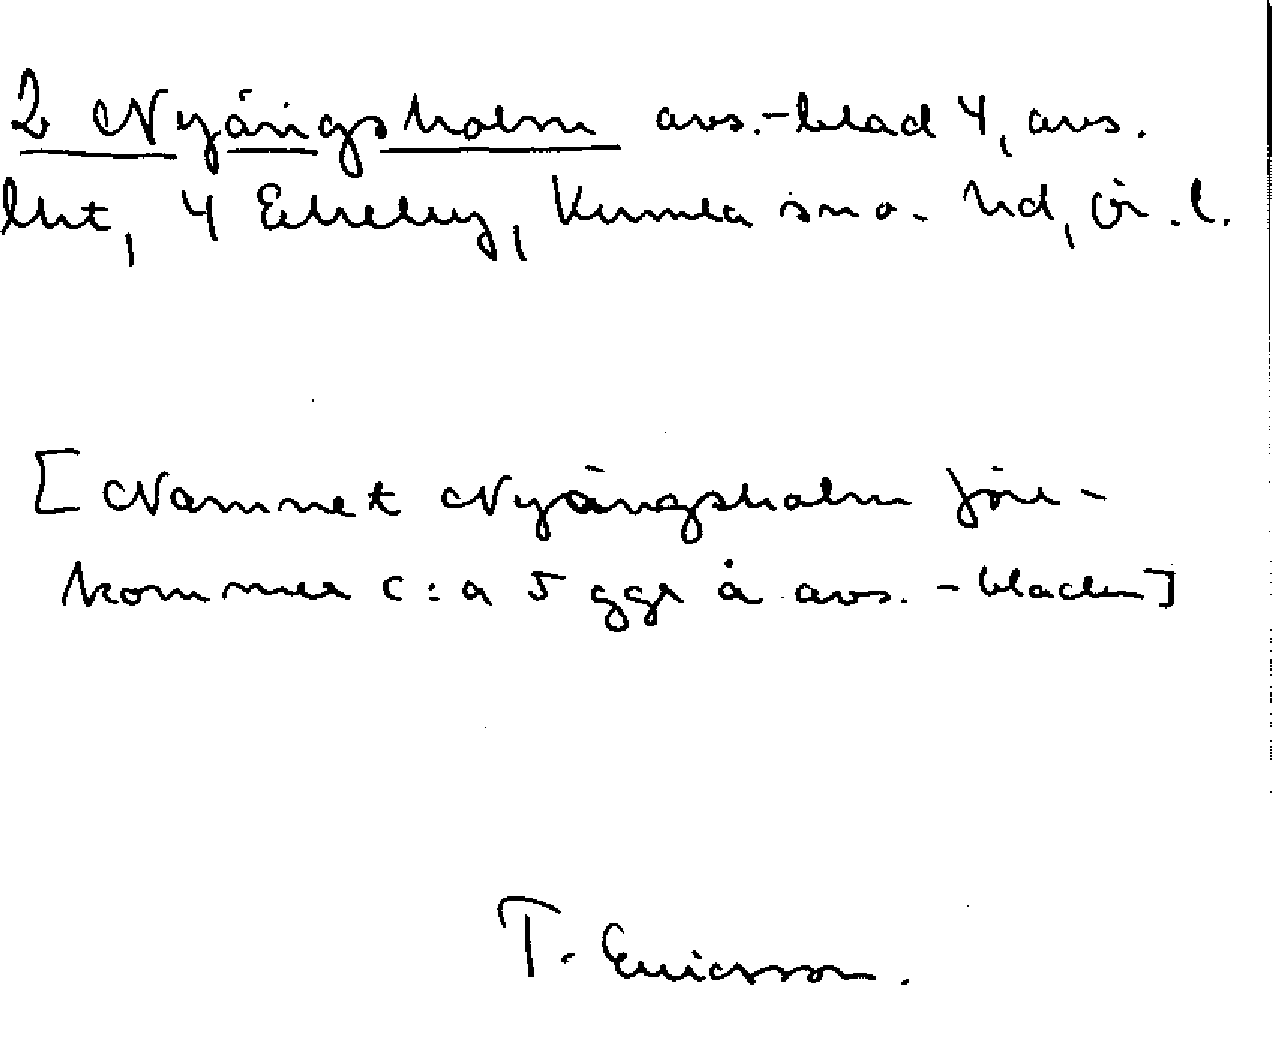 2 Nyängsholm avs.-blad 4, avs.
lht, 4 Ekeby, Kumla sn o. hd, Ör. l.
[Namnet Nyängsholm före-
kommer c:a 5 ggr å avs.-bladen]
T. Ericsson.